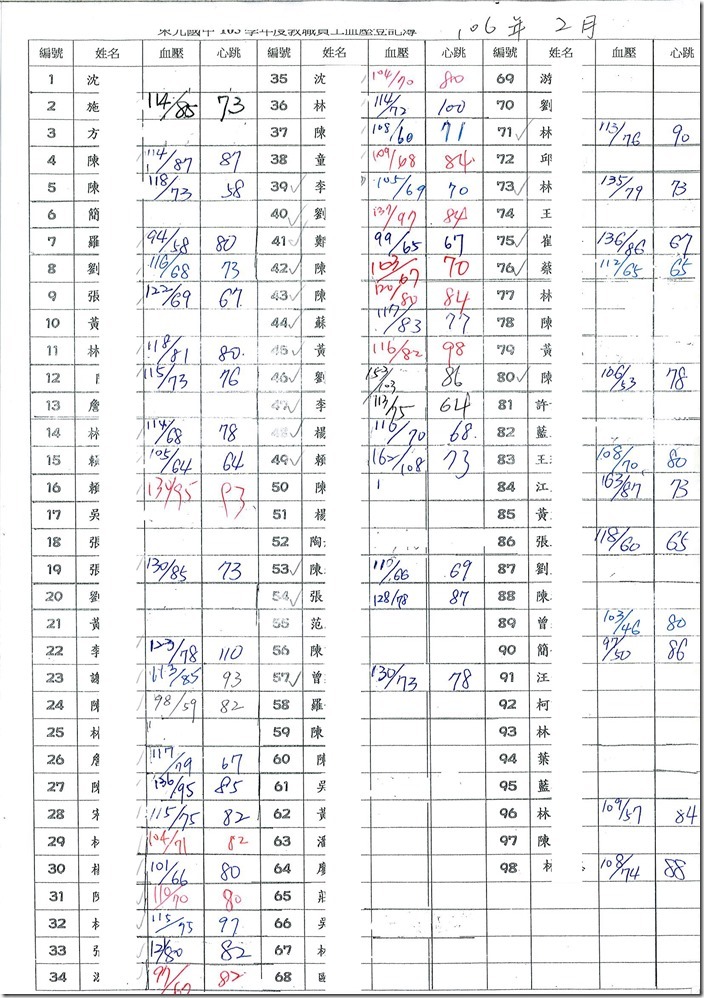 東光國中 105 學年度教職員工血壓登記簿 106 年 2 月
編號 姓名 血壓 心跳 編號 姓名 血壓 心跳 編號 姓名 血壓 心跳
1 沈 35 沈 104/70 80 69 游
2 施 114/85 73 36 林 114/72 100 70 劉
3 方 37 陳 108/60 71 71 ✓ 林 113/76 90
4 陳 114/87 87 38 童 109/68 84 72 邱
5 陳 118/73 58 39 ✓ 李 105/69 70 73 ✓ 林 135/79 73
6 簡 40 ✓ 劉 137/97 84 74 王
7 羅 94/58 80 41 ✓ 鄭 99/65 67 75 ✓ 崔 136/86 67
8 劉 116/68 73 42 ✓ 陳 103/67 70 76 ✓ 蔡 112/65 65
9 張 122/69 67 43 ✓ 陳 120/80 84 77 林
10 黃 44 ✓ 蘇 117/83 77 78 陳
11 林 118/81 80 45 ✓ 黃 116/82 98 79 黃
12 115/73 76 46 ✓ 劉 153/103 86 80 ✓ 陳 106/53 78
13 詹 47 ✓ 李 113/75 64 81 許
14 林 114/68 78 48 ✓ 楊 116/70 68 82 藍
15 賴 105/64 64 49 ✓ 賴 162/108 73 83 王 108/70 80
16 賴 93 50 陳 84 江 163/87 73
17 吳 51 楊 85 黃
18 張 52 陶 86 張 118/60 65
19 張 130/85 73 53 ✓ 陳 110/66 69 87 劉
20 劉 54 ✓ 張 128/78 87 88 陳
21 黃 55 范 89 曾 103/46 80
22 李 123/78 110 56 陳 90 簡 97/50 86
23 謝 113/85 93 57 ✓ 曾 130/73 78 91 汪
24 陳 98/59 82 58 羅 92 柯
25 林 59 陳 93 林
26 詹 117/79 67 60 陳 94 葉
27 陳 136/95 85 61 吳 95 藍
28 宋 115/75 82 62 黃 96 林 109/57 84
29 104/71 82 63 潘 97 陳
30 楊 101/66 80 64 廖 98 林 108/74 88
31 陳 110/70 80 65 莊
32 115/75 97 66 吳
33 張 82 67 林
34 97/67 82 68 歐